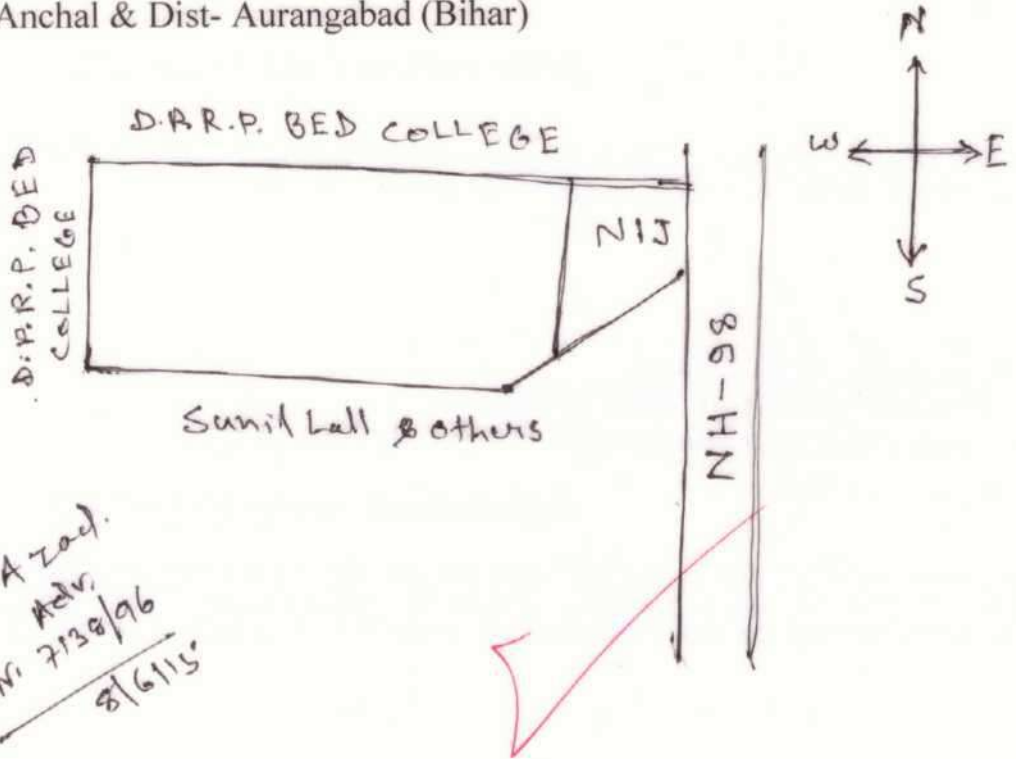 Anchal & Dist- Aurangabad (Bihar)
N
W E
S
D.R.R.P. BED COLLEGE
D.R.R.P. BED
COLLEGE
NIJ
NH-98
Sunil Lall & others
Azad.
Adv.
7138/96
8/6/15